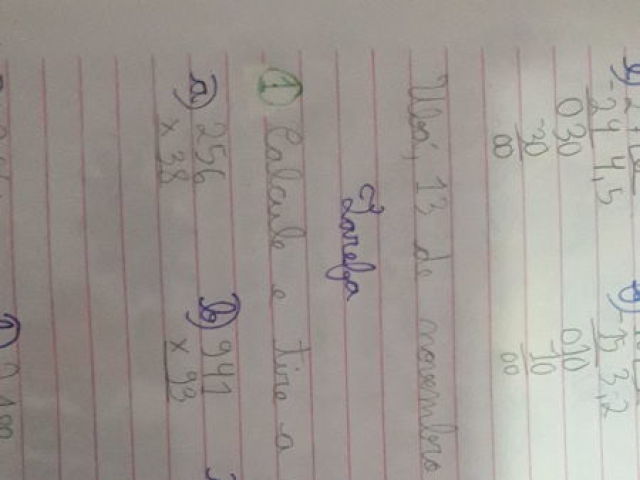 -24 4,5
-15 3,2
030
010
-30
-10
00
00
13 de novembro
Tarefa
1 Calcule e tire a
a) 256 b) 941
x 38 x 93